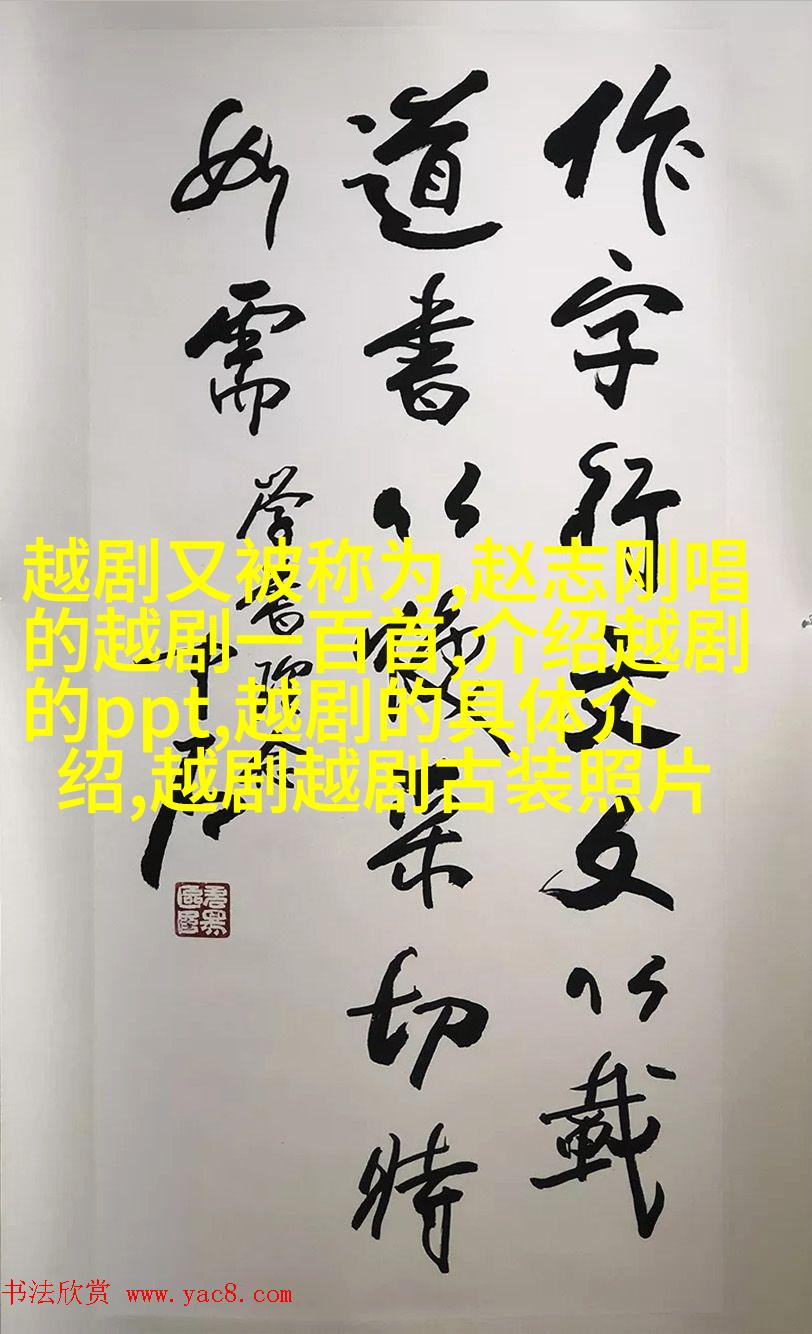 作字行文文以載
道書以采切時
如需
学書
中石
越剧又被称为,赵志刚唱
的越剧一百首,介绍越剧
的ppt,越剧的具体介
绍,越剧越剧古装照片
书法欣赏 www.yac8.com